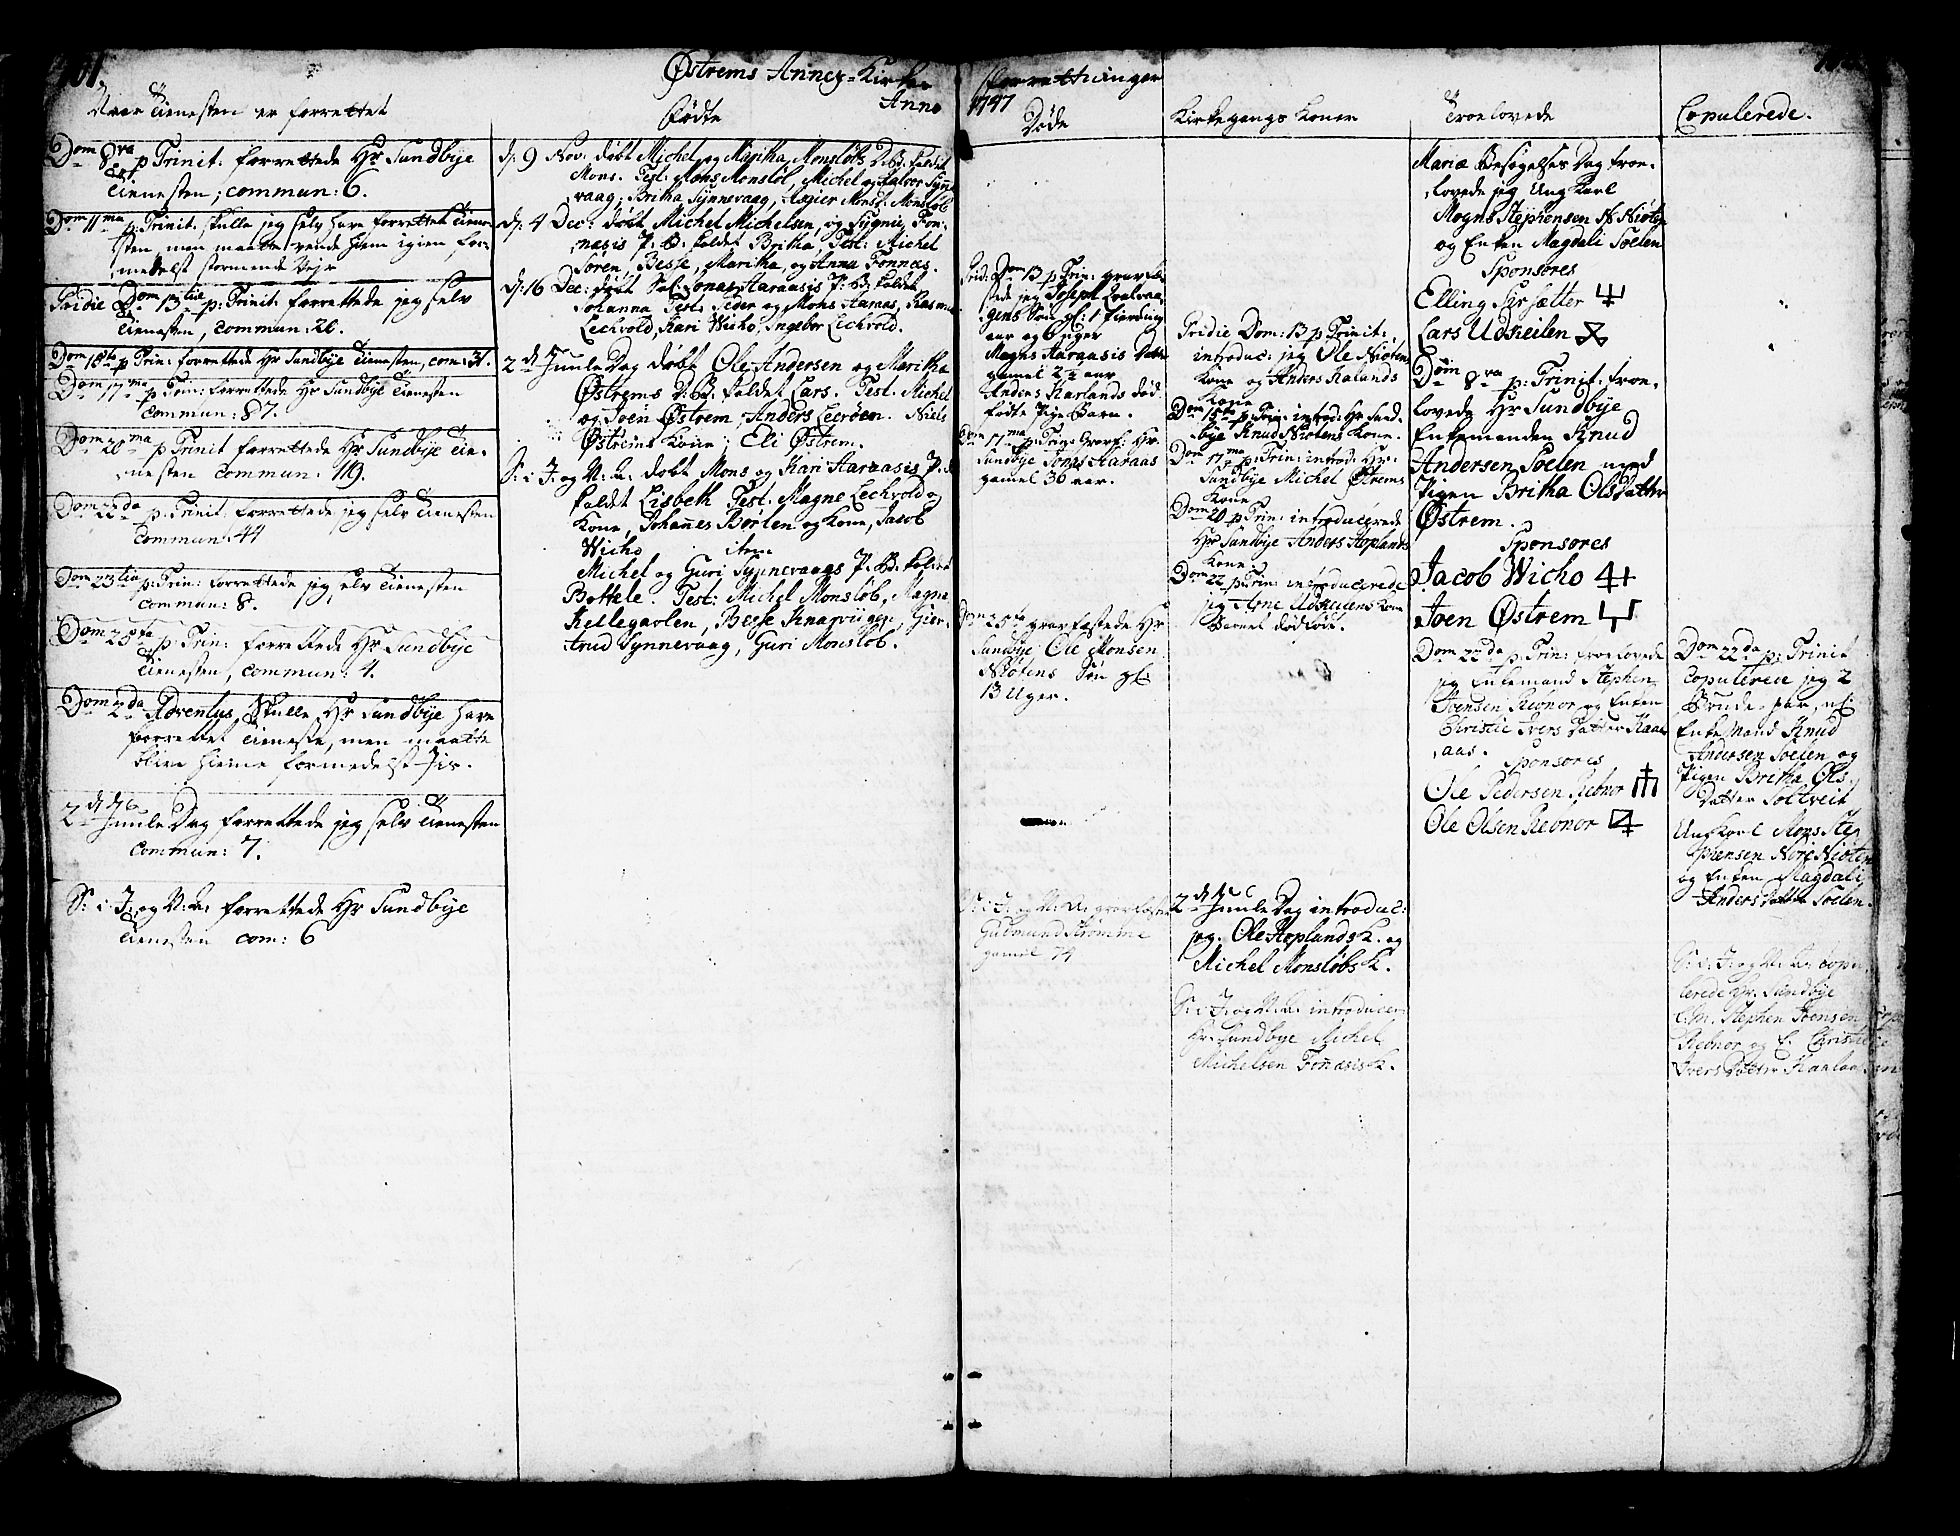 101.
Østrems Annex-Kirkes forretninger
Anno 1747
Naar Tienesten er forrettet
Dom 8va p Trinit: forrettede Hr Sundbye
Tienesten; commun: 6.
Dom 11ma p: Trinit: skulle jeg selv have forrettet Tiene-
sten, men maatte vende hiem igien for-
medelst stormende Vejr
Pridie Dom 13tia p: Trinit: forrettede jeg selv
Tienesten, commun: 26.
Dom 15ta p Trin: forrettede Hr Sundbye Tienesten, com: 31.
Dom 17ma p Trin: forrettede Hr Sundbye Tienesten
commun: 87.
Dom 20ma p Trinit forrettede Hr Sundbye Tie-
nesten commun: 119.
Dom 22da p: Trinit: forrettede jeg selv Tienesten
commun: 44
Dom 23tia p: Trin: forrettede jeg selv Tienesten
commun: 8.
Dom 25ta p: Trin: forrettede Hr Sundbye
Tienesten, commun: 4.
Dom 2da Adventus, skulle Hr Sundbye have
forrettet Tieneste, men maatte
blive hieme formedelst Iis.
2den Juule Dag forrettede jeg selv Tienesten
commun: 7.
S: i J: og N: A: forrettede Hr Sundbye
Tienesten com: 6
Fødte
d: 9 Nov: døbt Michel og Maritha Monsløbs D: B: kaldet
Mons. Test: Mons Monsløb, Michel og Halvor Synne
vaag, Britha Synnevaag, Monsløb
d: 4 Dec: døbt Michel Michelsen, og Sygni Fon-
nasis P: B: kaldet Britha, Test: Michel
Sören, Besse, Maritha, og Anna Fonnas.
d: 16 Dec: døbt Sal: Jonas Aaraasis P: B: kaldet
Johanna Test: Peder og Mons Aaraas, Rasmus
Lechvold, Kari Wicho, Ingebor Lechvold.
2den Juule Dag døbt Ole Andersen og Maritha
Østrems D: B: kaldet Lars. Test. Michel
og Joen Østrem, Anders Leeröen. Niels
Østrems Kone, Eli Østrem.
S: i J: og N: A: døbt Mons og Kari Aaraasis P: B:
kaldet Lisbeth Test: Magne Lechvold og
Kone, Johannes Børlen og Kone, Jacob
Wicho item
Michel og Guri Synnevaags P: B: kaldet
Bottele. Test: Michel Monsløb, Magne
Kellegavlen, Besse Gier-
trud Synnevaag, Guri Monsløb.
Døde
Prid: Dom 13 p Trin: gravfæ
stede jeg Joseph
gens Søn gl: 1 fierding
aar og 6 uger
Magns Aaraasis Datter
gamel 2½ aar
Anders Havlands død
fødte Pige Barn.
Dom 17ma p: Trin: Gravf: Hr
Sundbye Jonas Aaraas
gamel 36 aar.
Dom 25ta gravfæstede Hr
Sundbye Ole Monsen
Niøtens Søn gl:
13 Uger.
S: i J: og N: A: gravfæstet
Gudmund Strømme
gamel 74
Kirkegangs Koner
Pridie Dom: 13 p Trinit:
introduc: jeg Ole Niøtens
Kone og Anders Havlands
Kone
Dom 15ta p: Trin: introd: Hr Sund-
bye Knud Niøtens Kone.
Dom 17ma p: Trin: introd: Hr:
Sundbye Michel Østrems
Kone
Dom 20 p Trin: introducerede
Hr Sundbye Anders Hoplands
Kone
Dom 22 p: Trin: introducerede
jeg Arne Udkeilens Kone
Barnet dødfødt.
2den Juule Dag introduc:
jeg. Ole Hoplands K. og
Michel Monsløbs K.
S: i J: og N: A: introducer:
Hr: Sundbye Michel
Michelsen Fonnasis K.
Troelovede
Mariæ Besøgelses Dag troe-
lovede jeg Ung Karl
Mogns Stephensen N. Niøten
og Enken Magdali Soelen
Sponsores
Elling Syrsætter
Lars Udkeilen
Dom 8va p: Trinit: troe-
lovede Hr Sundbye
Enkemanden Knud
Andersen Soelen med
Pigen Britha OlsDatter
Østrem.
Sponsores
Jacob Wicho
Joen Østrem
Dom 22da p: Trin: troelovede
jeg Enkemand Stephen
Joensen Rebnor og Enken
Christie Ivers Datter Kaar
aas.
Sponsores
Ole Pedersen Rebnor
Ole Olsen Rebnor
Copulerede.
Dom 22da p: Trinit
copulerede jeg 2
Brude-par, nl:
Enke Mand Knud
Andersen Soelen og
Pigen Britha Ols
Datter Soltveit
Ung Karl Mons Ste
phensen Nore Niøten
og Enken Magdali
Anders Datter Soelen.
S: i J: og N: A: copu-
lerede Hr. Sundbye
E: M. Stephen Joensen
Rebnor og E. Christie
Ivers Datter